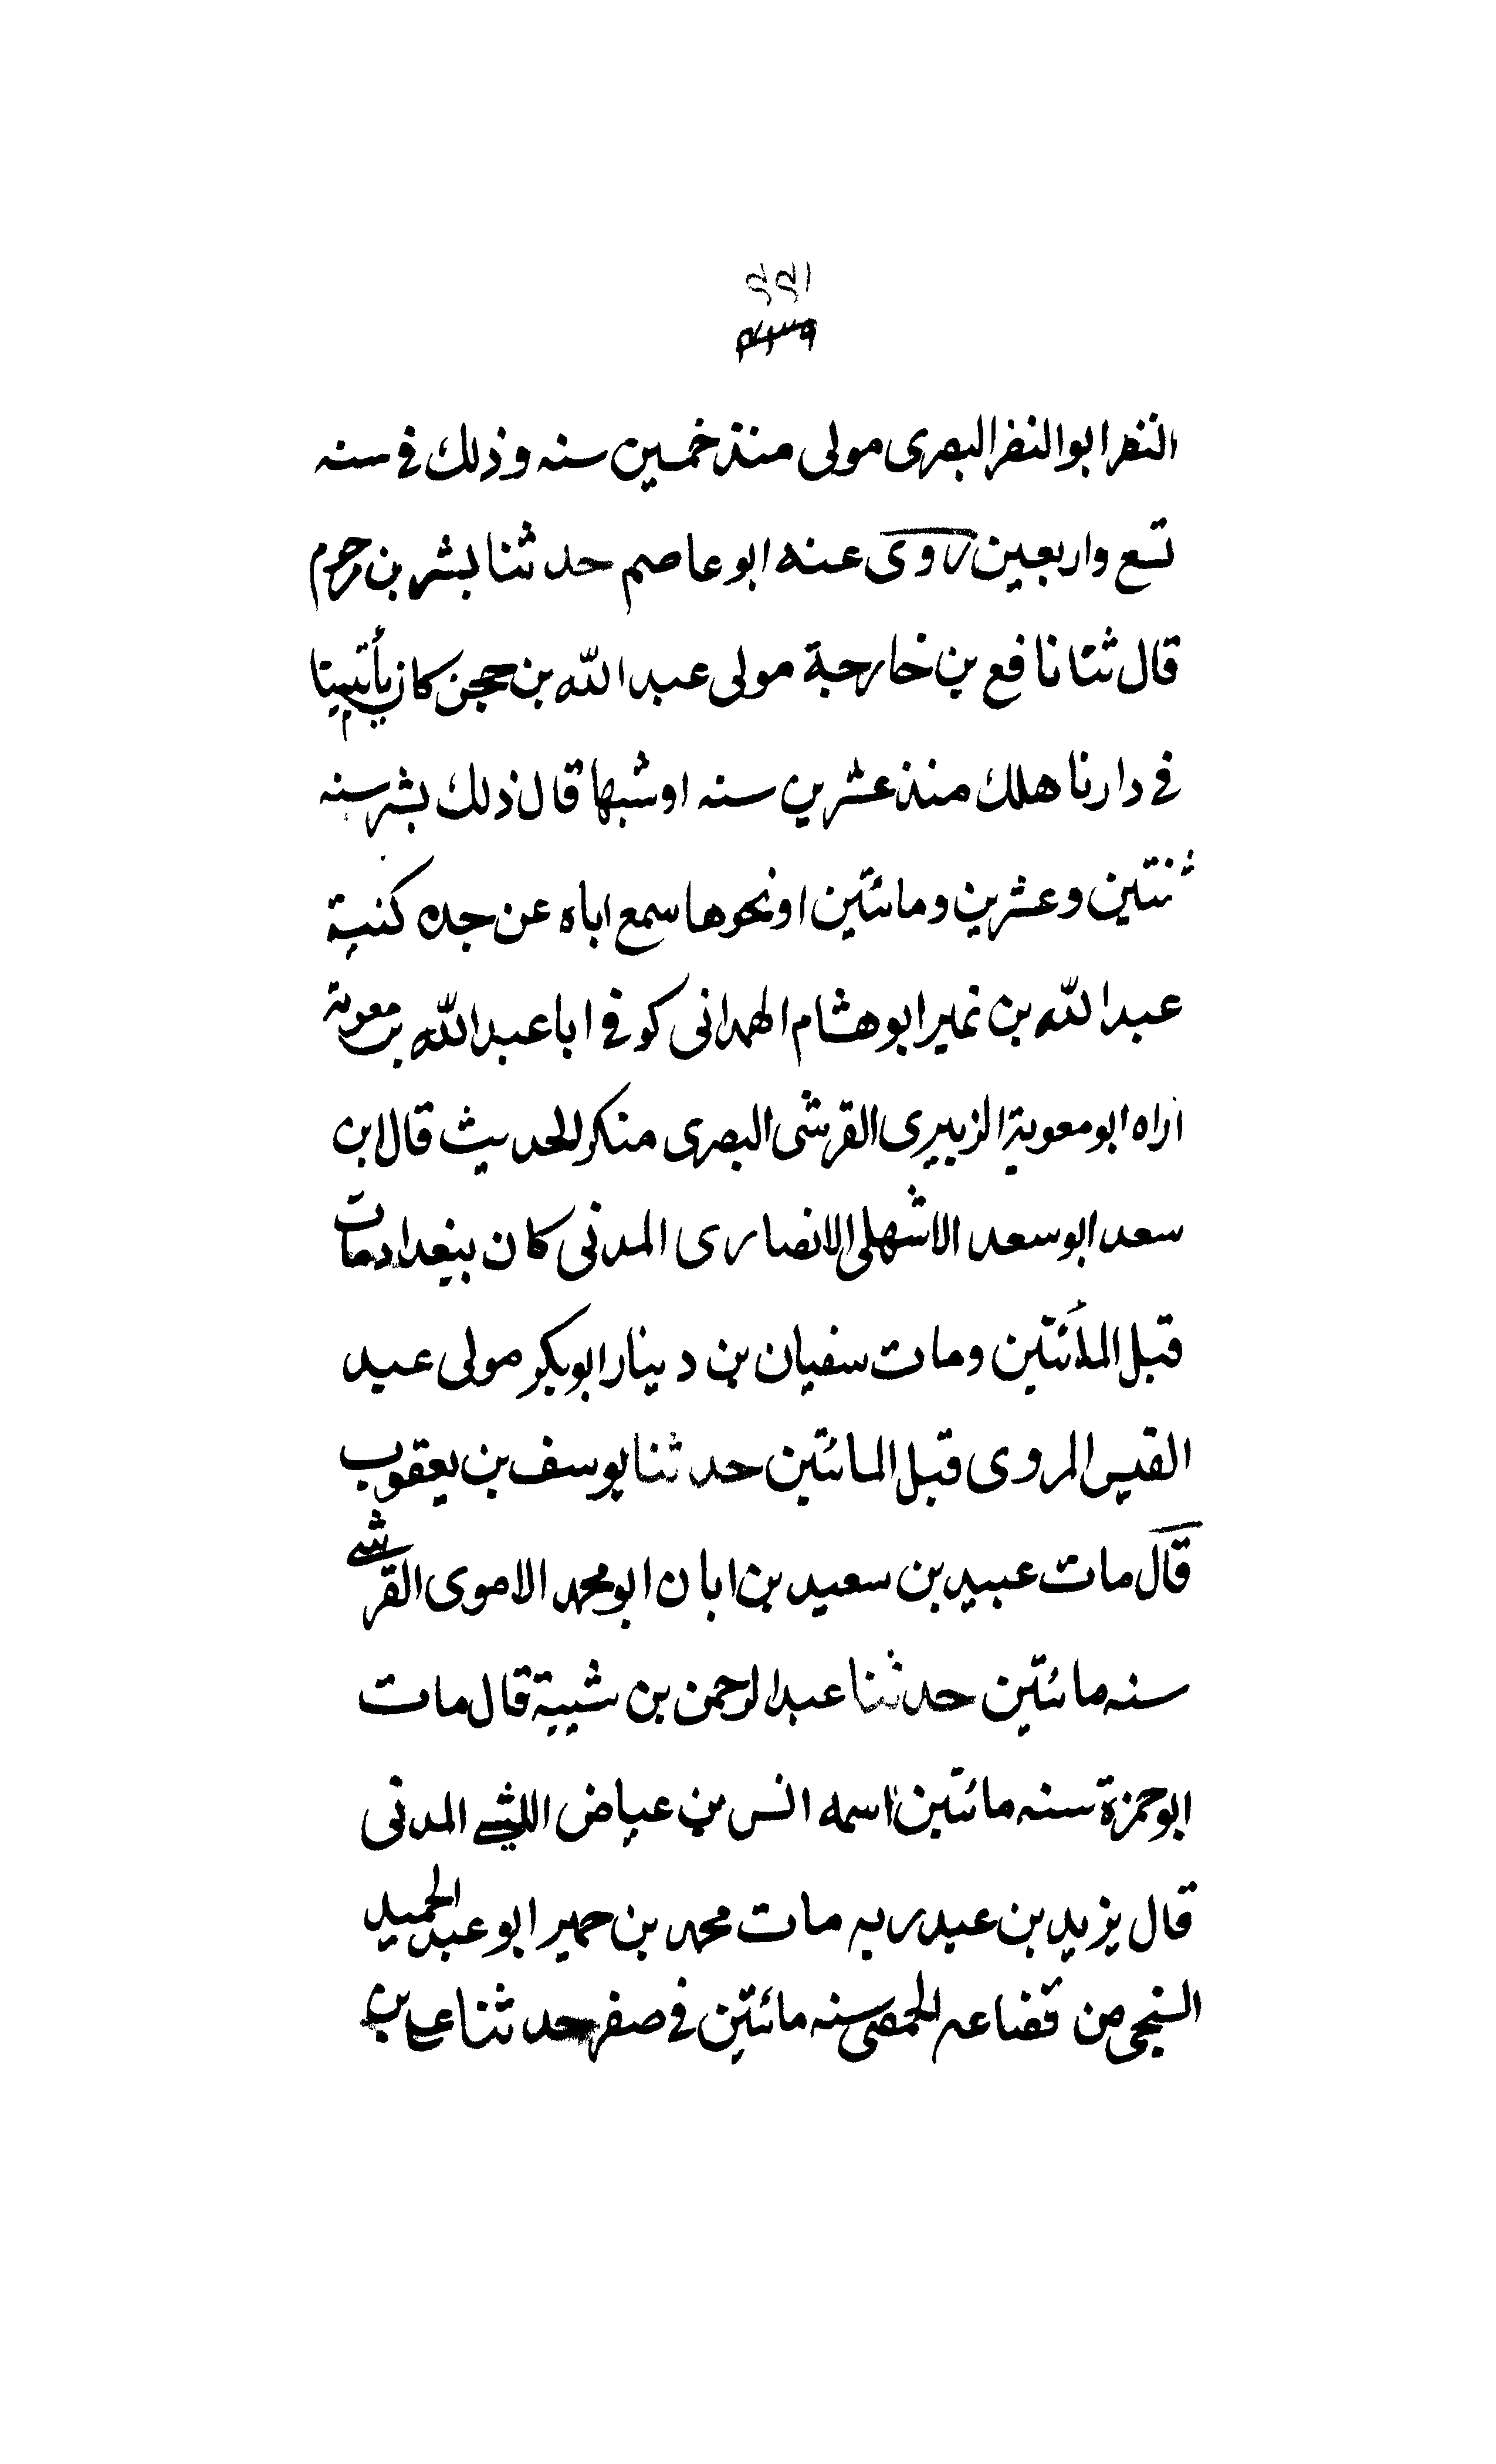 النضر ابو النضر البصرى مولى منذ خمسين سنه وذلك فى سنه
تسع واربعين روى عنه ابو عاصم حدثنا بشر بن مرحوم
قال ثنا نافع بن خارجة مولى عبد الله بن حجن كان يأتينا
فى دارنا هلك منذ عشرين سنه او شبهها قال ذلك بشر سنه
ثنتين وعشرين ومائتين او نحوها سمع اباه عن جده كنية
عبد الله بن نمير ابو هشام الهمدانى كوفى ابا عبد الله بن معوية
اراه ابو معوية الزبيرى القرشى البصرى منكر الحديث قال ابن
سعد ابو سعد الاشهلى الانصارى المدنى كان ببغداد مات
قبل المائتين ومات سفيان بن دينار ابو بكر مولى عبد
القيس المروى قبل المائتين حدثنا يوسف بن يعقوب
قال مات عبيد بن سعيد بن ابان ابو محمد الاموى القرشى
سنه مائتين حدثنا عبد الرحمن بن شيبة قال مات
ابو حمزة سنه مائتين اسمه انس بن عياض الليثى المدنى
قال يزيد بن عبد ربه مات محمد بن حمير ابو عبد الحميد
السنجى من قضاعه الحمصى سنه مائتين فى صفر حدثنا على بن